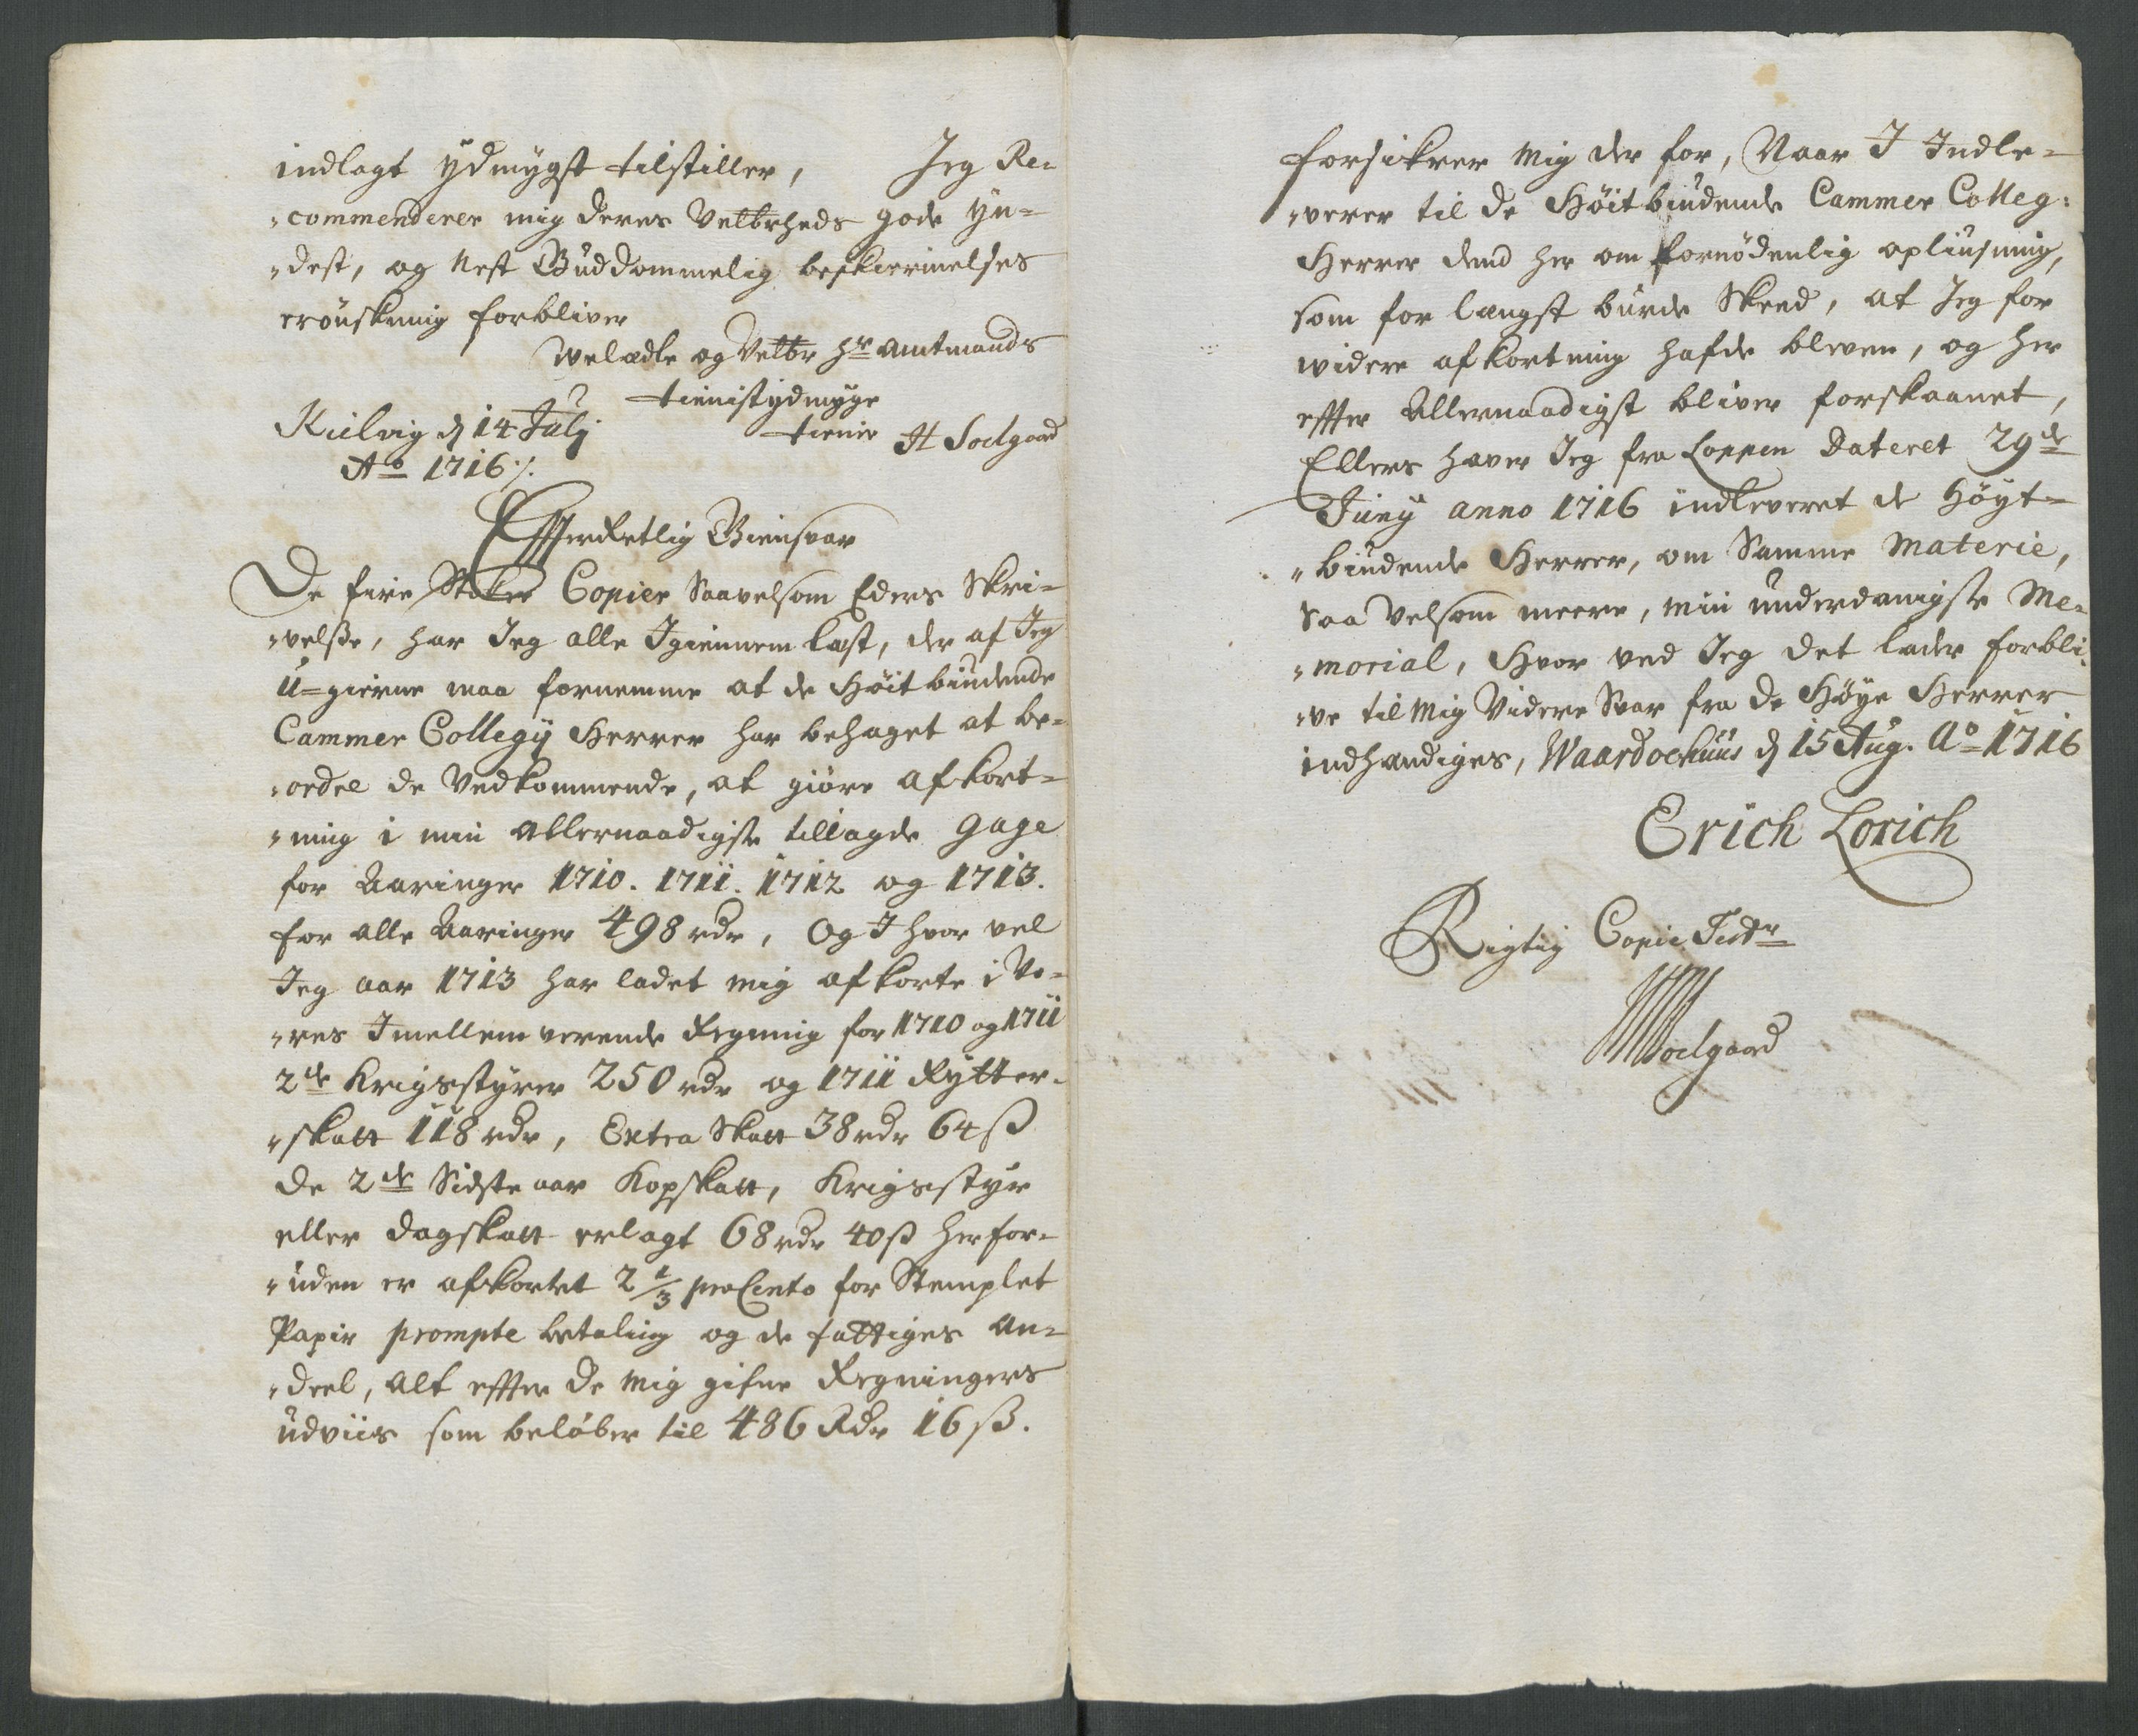 indlagt ydmygst tilstiller, Jeg Re-
"commenderer mig deres Velbrheds gode yn-
"dest, og Nest Guddommelig beskiermelses
erønskning forbliver
Welædle og Velbr Hr Amtmands
tienistydmyge
Kielvig d 14 Julj tiener H Soelgaard
Ao 1716 ./.
Efftterretlig Giensvar
De fire Copier Saavelsom Eders Skri-
"velsse, har Jeg alle Igiennem læst, der af Jeg
U-gierne maa fornemme at de Høitbiudende
Cammer Collegy Herrer har behaget at be-
"ordre de Vedkommende, at giøre afkort-
"ning i min allernaadigste tillagde gage
for Aaringer 1710. 1711. 1712 og 1713.
for alle Aaringer 498 rdr, Og I hvor vel
Jeg aar 1713 har ladet mig afkorte i Vo-
"res Imellem verende Regning for 1710 og 1711
2de Krigsstyrer 250 rdr og 1711 Rytter-
"skatt 118 rdr, Extra Skatt 38 rdr 64 ß
de 2de Sidste aar Kopskatt, Krigsstyr
eller dagskatt erlagt 68 rdr 40 ß her for-
"uden er afkortet 2 1/3 pro Cento for Stemplet
Papir prompte betaling og de fattiges An-
"deel, alt effter de mig gifne Regningers
udviis som beløber til 486 Rdr 16 ß.
forsikrer mig der for, Naar I Indle-
"verer til de Høitbiudende Cammer Colleg:
Herrer dend her om fornødenlig opliusning,
som for længst burde skeed, at Jeg for
widere afkortning hafde bleven, og her
effter Allernaadigst bliver forskaanet,
Ellers haver Jeg fra Loppen Dateret 29de
Juny anno 1716 indleveret de Høyt-
"biudende Herrer, om Samme Materie,
Saa velsom meere, min underdanigste Me-
"morial, Hvor ved Jeg det lader forbli-
"ve til Mig Videre Svar fra de Høye Herrer
indhændiges, Waardoehuus d 15 Aug. Ao 1716
Erich Lorich
Rigtig Copie Test
Soelgaard